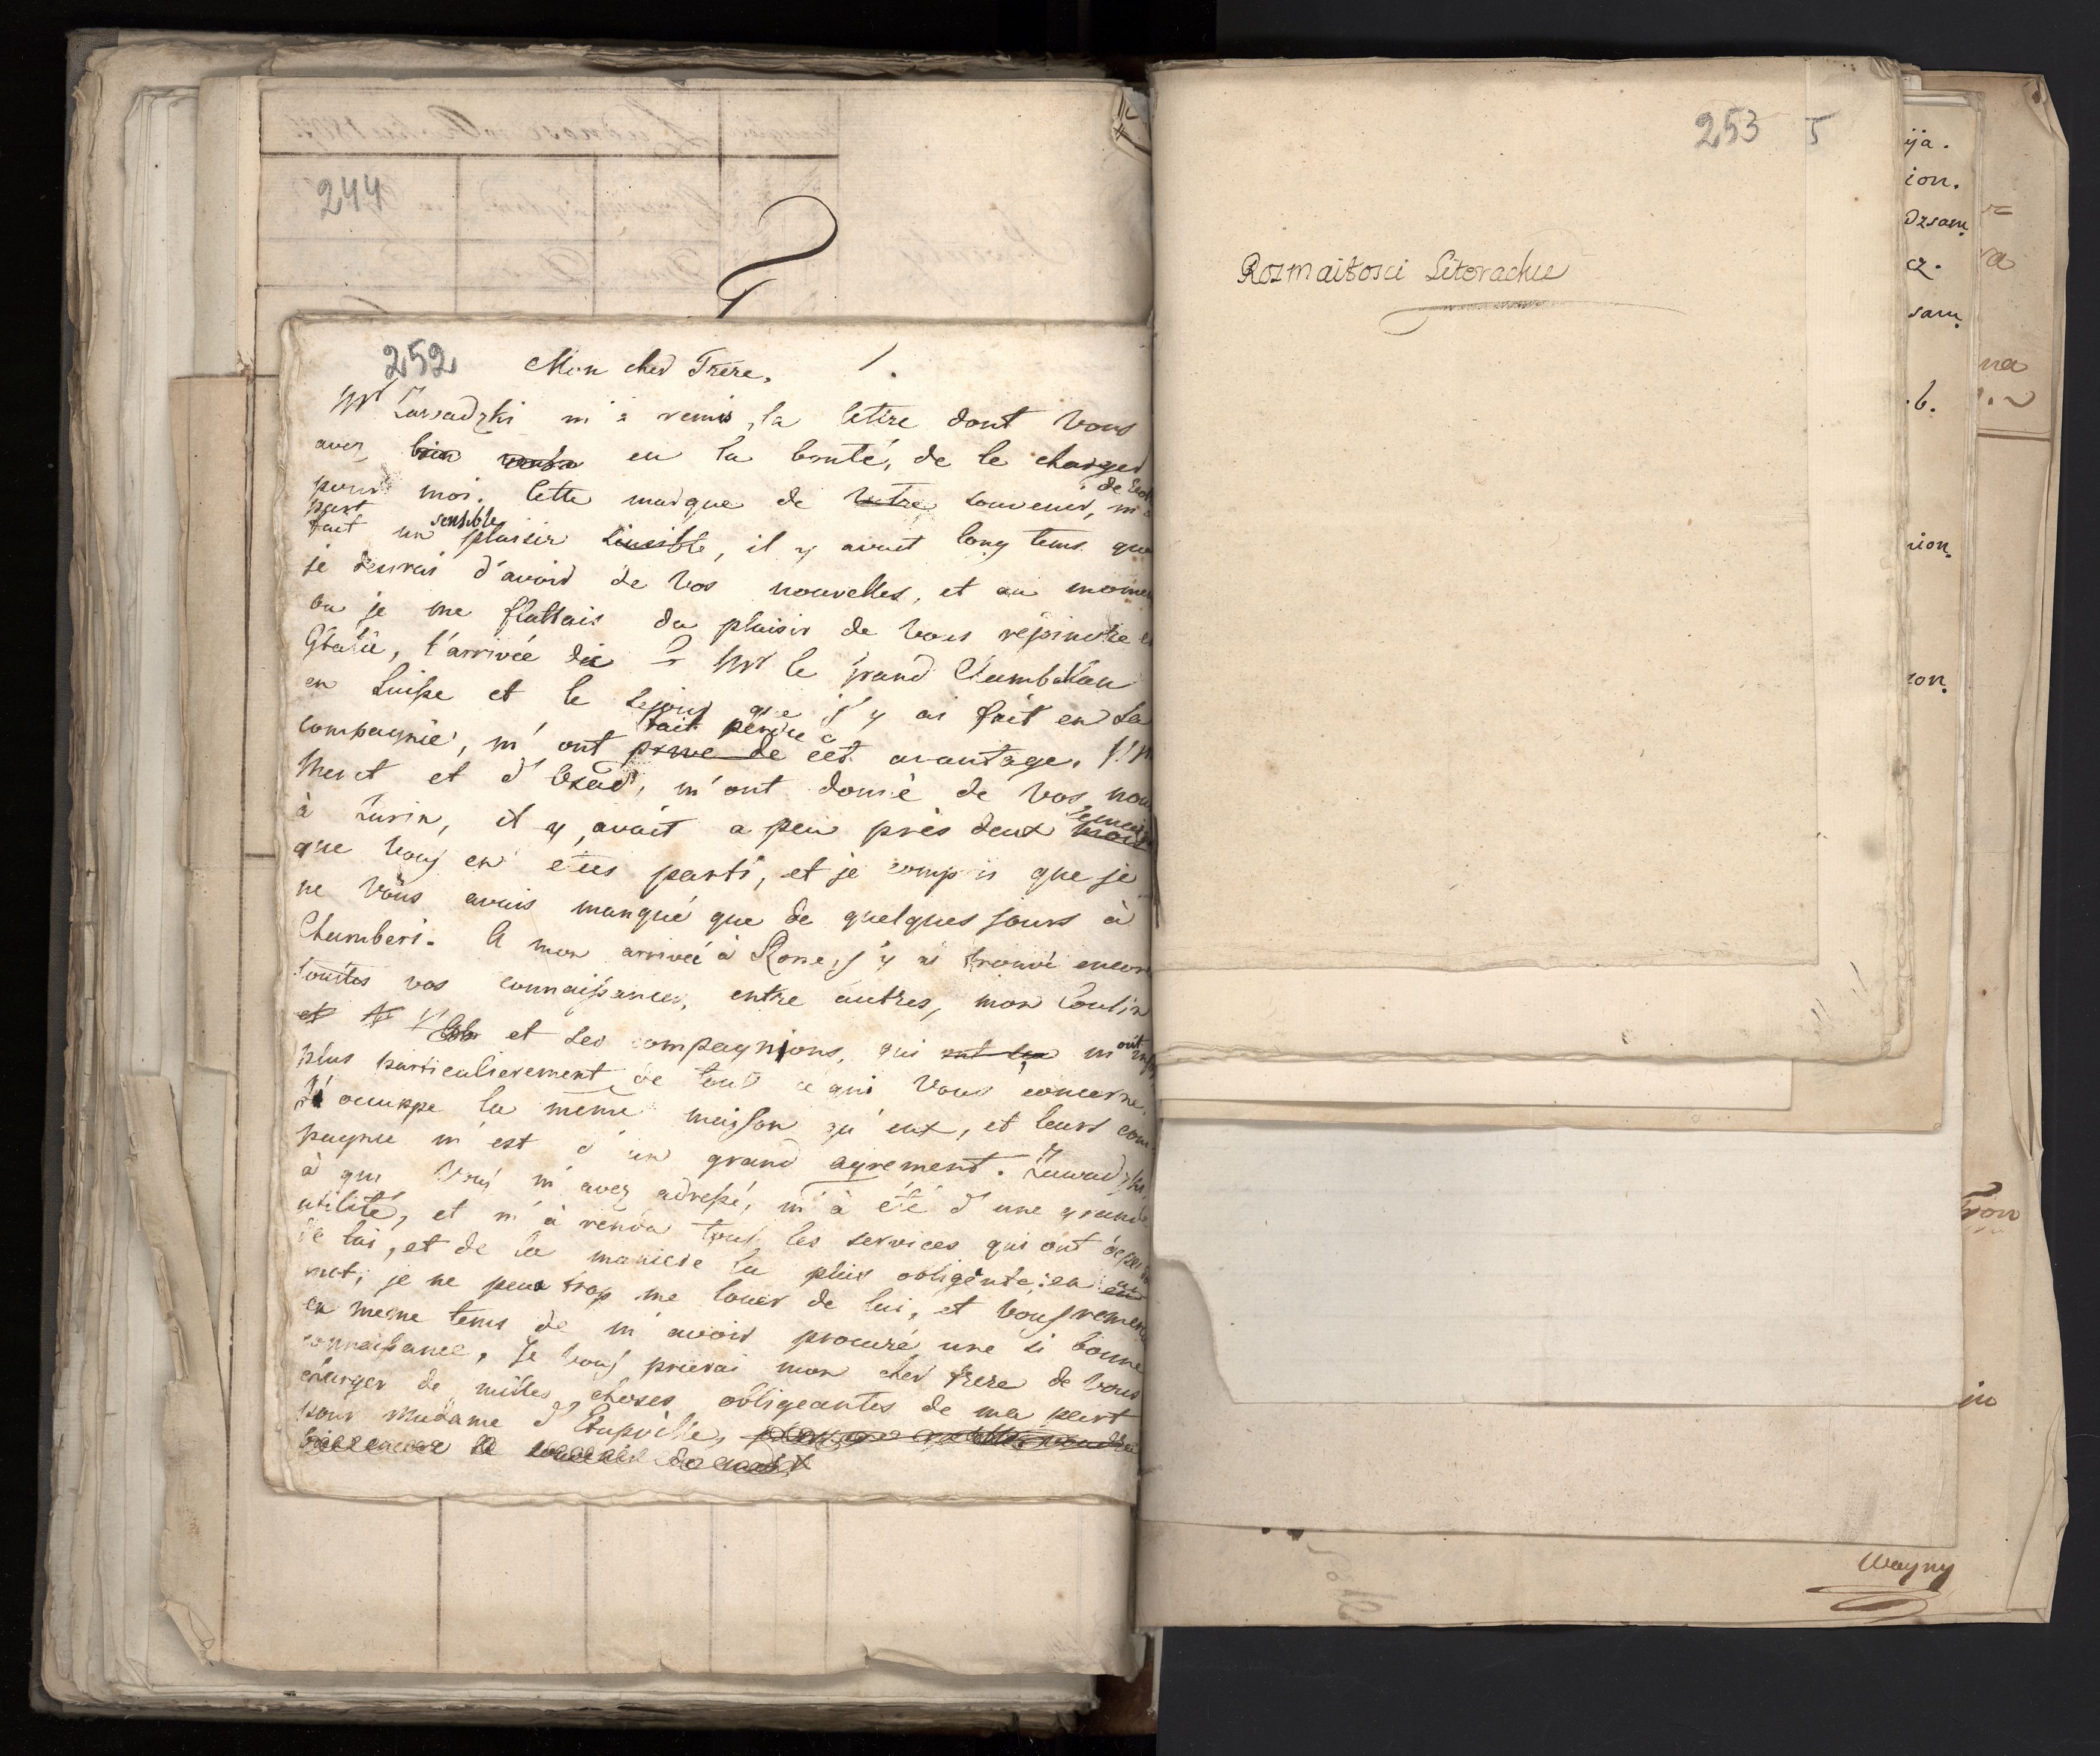 244
252 Mon cher Frere. 1.
Mr Zawadzki m'a remis la lettre dont vous
avez bien voulu eu la bonté, de le charger
pour moi. Cette marque de votre souvenir, m'a
de
part
fait un sensible plaisir sensible, il y avait long tems que
je desirais d'avoir de vos nouvelles, et au momen
ou je me flattais du plaisir de vous rejoindre e
l'arrivée de Mr le grand Chambellan
en Suisse et le sejour que j'y ai fait en sa
compagnie, m'ont fait perdre privé de cet avantage.
et d' m'ont donné de vos nou
à Turin, il y avait a peu près deux mois
que vous en eties parti, et je compris que je
ne vous avais manqué que de quelques jours à
Chamberi. A mon arrivée à Rome, j'y ai trouvé encore
toutes vos connaissances, entre autres, mon Cousin
et et ses compagnions, qui ont m'ont
plus particulierement de tout ce qui vous concerne.
J'occuppe la même maison qu'eux, et leurs com
pagnie m'est d'un grand agrement. Zawadzki,
à qui vous m'avez adressé, m'à été d'une grande
utilité, et m'à rendu tous les services qui ont depen
de lui, et de la maniere la plus obligente: en
mot, je ne peux trop me louer de lui, et vous remerc
en meme tems de m'avoir procuré une si bonne
connaissance, Je vous prierai mon cher frere de vous
charger de milles choses obligeantes de ma part
pour Madame d'
253 5
Rozmaitosci Literackie
ija.
ion.
dzsam.
cz.
sam.
.b.
nion.
ion.
na
Wayny